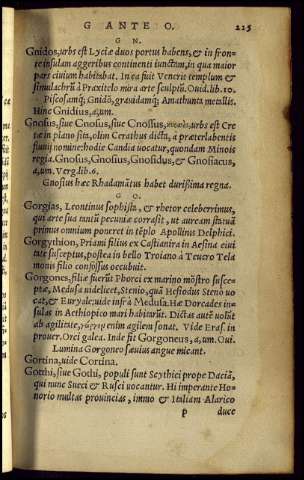 G ANTE O. 225
G N.
Gnidos, urbs est Lyciæ duos portus habens, & in fron-
te insulam aggeribus continenti iunctam, in qua maior
pars ciuium habitabat. In ea fuit Veneris templum &
simulachrũ à Praxitelo mira arte sculptũ. Ouid. lib. 10.
Piscosamq́; Gnidõ, grauidamq́; Amathunta metallis.
Hinc Gnidius, a, um.
Gnosus, siue Gnosius, siue Gnossus, urbs est Cre
tæ in plano sita, olim Cerathus dicta, à præterlabentis
fluuij nomine hodie Candia uocatur, quondam Minois
regia. Gnosus, Gnosius, Gnosidus, & Gnosiacus,
a, um. Verg. lib. 6.
Gnosius hæc Rhadamātus habet durissima regna.
G O.
Gorgias, Leontinus sophista, & rhetor celeberrimus,
qui arte sua tantũ pecuniæ corrasit, ut auream statuã
primus omnium poneret in tēplo Apollinis Delphici.
Gorgythion, Priami filius ex Castianira in Aesina ciui
tate susceptus, postea in bello Troiano à Teucro Tela
monis filio confossus occubuit.
Gorgones, filiæ fuerũt Phorci ex marino mõstro susce-
ptæ, Medusa uidelicet, Stenio, quã Hesiodus Steno uo
cat, & Euryale: uide infrà Medusa. Hæ Dorcades in-
sulas in Aethiopico mari habitarũt. Dictas autẽ uolũt
ab agilitate, enim agilem sonat. Vide Eras. in
prouer. Orci galea. Inde fit Gorgoneus, a, um. Oui.
Lumina Gorgoneo sæuius angue micant.
Gortina, uide Cortina.
Gotthi, siue Gothi, populi sunt Scythici prope Daciã,
qui nunc Sueci & Rusci uocantur. Hi imperante Ho-
norio multas prouincias, immo & Italiam Alarico
p duce